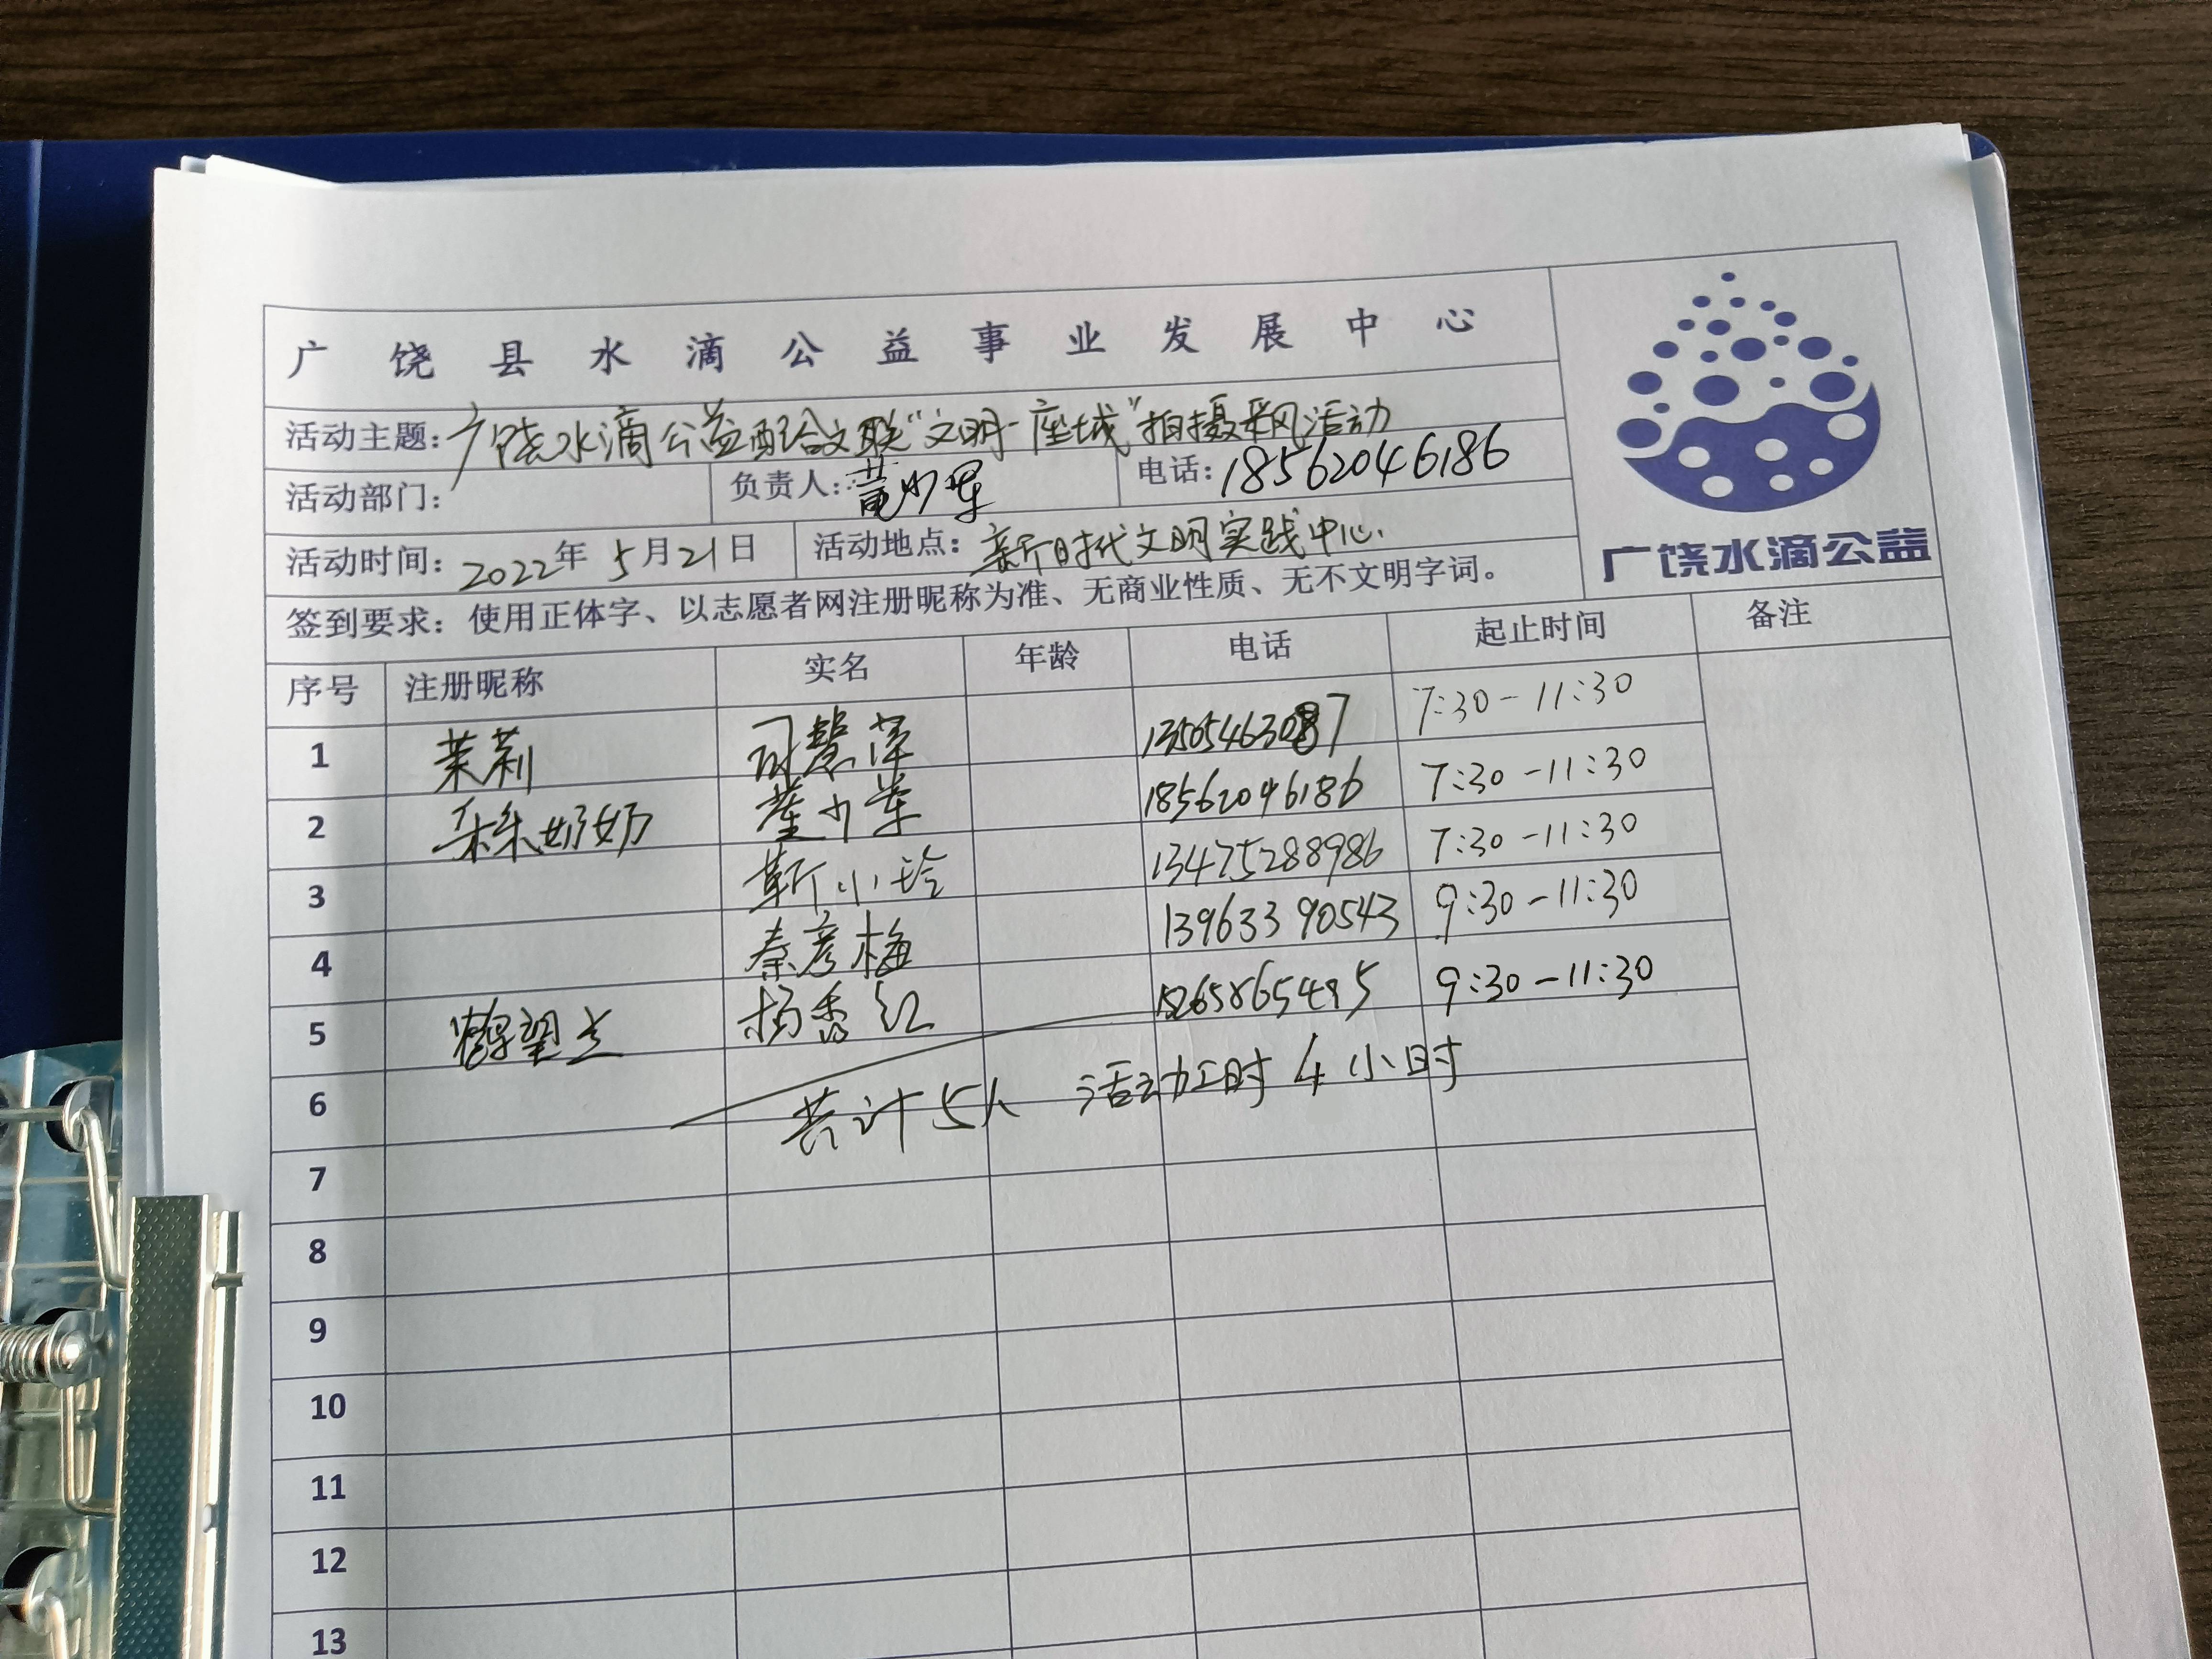 广饶县水滴公益事业发展中心
活动主题:广饶水滴公益配合文联“文明一座城”拍摄采风活动
活动部门: 负责人: 电话:18562046186
活动时间:2022年5月21日 活动地点:新时代文明实践中心.
广饶水滴公益
签到要求:使用正体字、以志愿者网注册昵称为准、无商业性质、无不文明字词。
序号 注册昵称 实名 年龄 电话 起止时间 备注
1 茉莉 13505463087 7:30-11:30
2 朵朵奶奶 18562046186 7:30-11:30
3 靳小玲 13475288986 7:30-11:30
4 秦彦梅 13963390543 9:30-11:30
5 鹤望兰 杨秀红 15265865495 9:30-11:30
6 共计5人 活动工时4小时
7
8
9
10
11
12
13